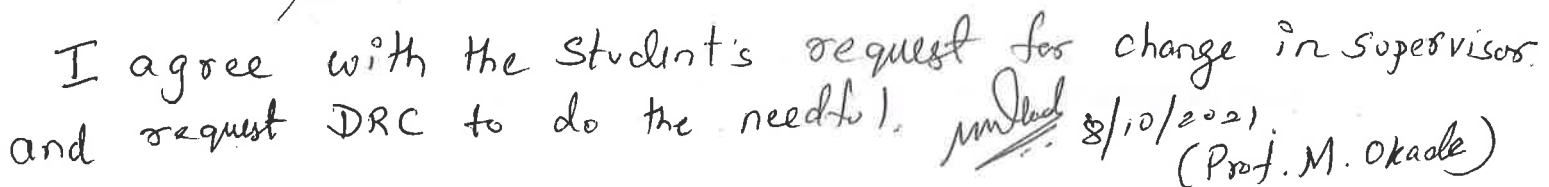 I agree with the student's request for change in supervisor.
and request DRC to do the needful. 8/10/2021.
(Prof. M. Okade)